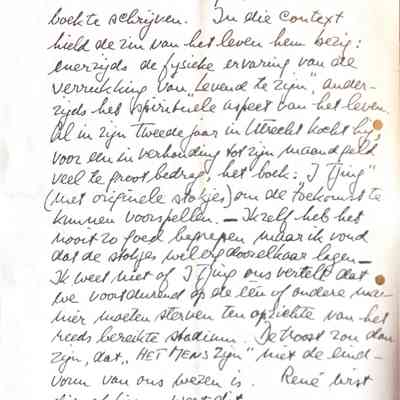 boek te schrijven. In die context
hield de zin van het leven hem bezig:
enerzijds de fysieke ervaring van de
verrukking van „levend te zijn", ander-
zijds het spirituele aspect van het leven.
Al in zijn tweede jaar in Utrecht kocht hij,
voor een in verhouding tot zijn maandgeld
veel te groot bedrag, het boek: „I Tjing"
(met originele stokjes) om de toekomst te
kunnen voorspellen. — Ik zelf heb het
nooit zo goed begrepen maar ik vond
dat de stokjes wel erg door elkaar lagen —
Ik weet niet of I Tjing ons vertelt dat
we voortdurend op de een of andere ma-
nier moeten sterven ten opzichte van het
reeds bereikte stadium. De troost zou dan
zijn, dat „HET MENS ZIJN" niet de eind-
vorm van ons wezen is. René wist